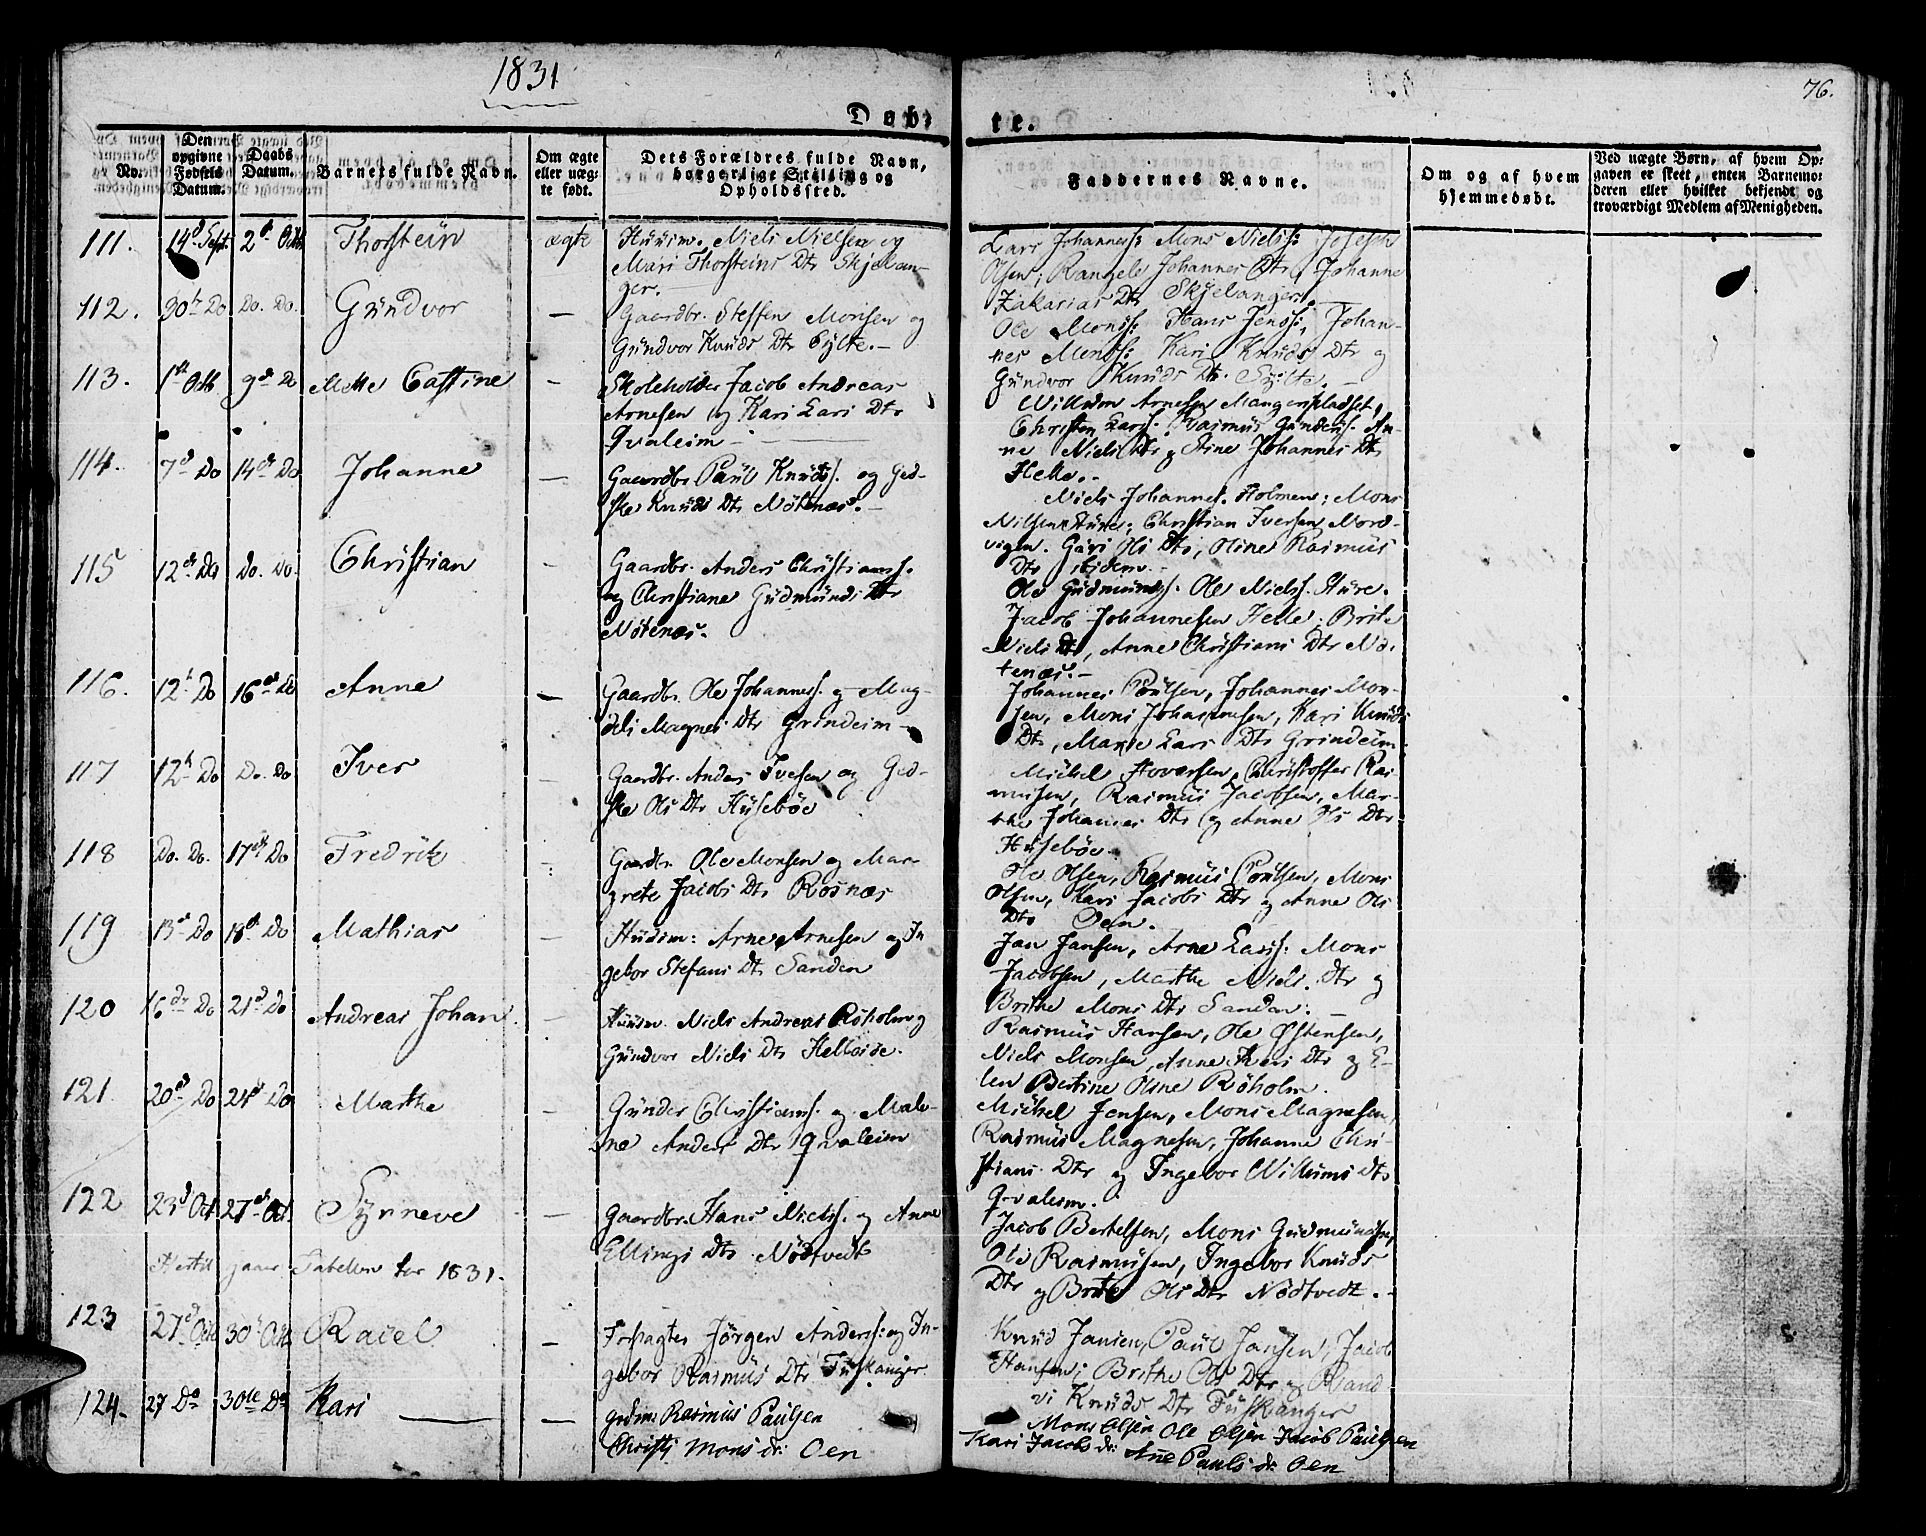 1831
76.
Døb-
te.
No.
Den opgivne Fødsels Datum.
Daabs Datum.
Barnets fulde Navn.
Om ægte eller uægte født.
Dets Forældres fulde Navn, borgerlige Stilling og Opholdssted.
Faddernes Navne.
Om og af hvem hjemmedøbt.
Ved uægte Børn, af hvem Opgaven er skeet, enten Barnemoderen eller hvilket bekjendt og troværdigt Medlem af Menigheden.
111. 14d Sept. 2d Octb Thorstein ægte
Huusm. Niels Nielsen og
Mari Thorsteins Dtr Skjelan-
ger.
Lars Johanness: Mons Nielss: Joseph
Olsen; Rangele Johannes Dtr, Johanne
Zakarias Dtr Skjelanger.
112. 30te Do Do. Do. Gündvor —
Gaardbr. Steffen Monsen og
Gündvor Knüds Dtr Sylte.—
Ole Monss: Hans Jenss:, Johan-
nes Monss: Kari Knüds Dtr og
Gündvor Knüds Dtr. Sylte.—
113. 1ste Octb 9de Do Mette Castine —
Skoleholder Jacob Andreas
Arnesen og Kari Lars Dtr
Qvaleim —
Willum Arnesen Mangerspladset,
Christen Larss. Rasmus Gunders: An-
ne Niels Dtr og Stine Johannes Dtr
Helle.—
114. 7d Do 14de Do Johanne —
Gaardbr Paul Knüdss. og Ged-
ske Knüds Dtr Nötenæs.—
Niels Johannes. Holmen; Mons
Nilsen Stüre; Christian Iversen Nord-
vigen. Güri Ols Dtr, Oline Rasmüs
Dtr ibidem.—
115 12de Do Do. Do. Christian —
Gaardbr. Anders Christianss.
og Christiane Güdmünds Dtr
Nötenæs.
Ole Güdmündss. Ole Nielss. Stüre.
Jacob Johannesen Helle; Brite
Niels Dtr, Anne Christians Dtr Nö-
tenæs.—
116. 12t Do 16de Do Anne —
Gaardbr. Ole Johanness. og Mag-
deli Magnes Dtr Grindeim —
Johannes Poülsen, Johannes Mon-
sen, Mons Johannesen, Kari Knüds
Dtr, Marie Lars Dtr Grindeim.
117 12t Do Do. Do Iver —
Gaardbr. Anders Ivesen og Ged-
ske Ols Dtr Hüseböe
Mickel Hoversen, Christoffer Ras-
musen, Rasmüs Jacobsen, Mar-
the Johannes Dtr og Anne Ols Dtr
Hüseböe.
118 Do. Do. 17de Do Fredrik —
Gaardbr. Ole Monsen og Mar-
grete Jacobs Dtr Rosnæs
Ole Olsen, Rasmüs Poülsen, Mons
Olsen, Kari Jacobs Dtr og Anne Ols
Dtr Oen.
119 13de Do 18d Do Mathias —
Hüüsm: Arne Arnesen og In
gebor Stefans Dtr Sanden
Jan Jansen, Arne Larss: Mons
Jacobsen, Marthe Niels. Dtr og
Brithe Mons Dtr Sanden.—
120 16de Do 21d Do Andreas Johan —
Hüüsm. Niels Andreas Röholm og
Gündvor Niels Dtr Helleide.
Rasmüs Hansen, Ole Østensen,
Niels Monsen, Anne Dtr og E-
len Bertine Olsne Röholm.
121 20de Do 24de Do Marthe —
Günder Christianss. og Male-
ne Anders Dtr Qvaleim
Mickel Jensen, Mons Magnesen,
Rasmüs Magnesen, Johanne Chri-
stians Dtr og Ingebor Willums Dtr
Qvaleim.
122 23d Oct. 27de Oct. Synneve —
Gaardbr. Hans Nielss. og Anne
Ellings Dtr. Nödtvedt
Jacob Bertelsen, Mons Güdmündsen,
Ole Rasmüsen, Ingebor Knüds
Dtr og Brite Ols Dtr Nödtvedt.—
Hertil gaaer Tabellen for 1831.
123 27d Octb 30te Octb Racel —
Forpagter Jörgen Anderss: og In-
gebor Rasmüs Dtr. Füskanger
Knüd Jansen, Paül Jansen, Jacob
Hansen; Brithe Ols Dtr og Rand
vi Knüds Dtr Füskanger
124. 27 Do 30te Do Kari —
grdm: Rasmüs Paulsen
Christj Mons dr: Oen
Mons Olsen Ole Olsen Jacob Paulsen
Kari Jacobs dr: Ane Pauls dr Oen